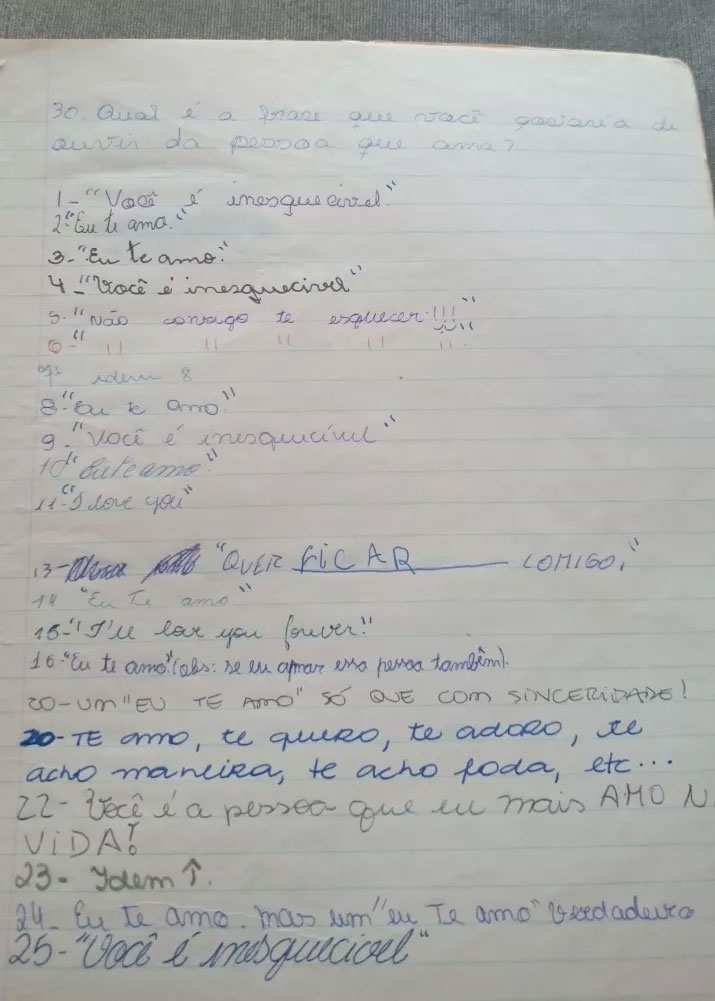 30. Qual é a frase que você gostaria de
ouvir da pessoa que ama?
1- "Você é inesquecivel."
2- "Eu te amo."
3- "Eu te amo."
4- "Você é inesquecivel"
5. "não consigo te esquecer!!!"
6- " " " " " "
7- idem 8
8- "Eu te amo."
9- "Você é inesquecível"
10 "Eu te amo."
11- "I love you"
13- "QUER FICAR COMIGO."
14 "Eu Te amo"
15- "I'll lov you fouver!"
16- "Eu te amo" (obs: se eu amar essa pessoa também).
20- UM "EU TE AMO" SÓ QUE COM SINCERIDADE!
20- TE amo, te quero, te adoro, te
acho maneira, te acho foda, etc...
22- Você é a pessoa que eu mais AMO N
VIDA!
23- Idem ↑.
24- Eu te amo. mas um "eu Te amo" verdadeiro
25- "Você é inesquecivel"